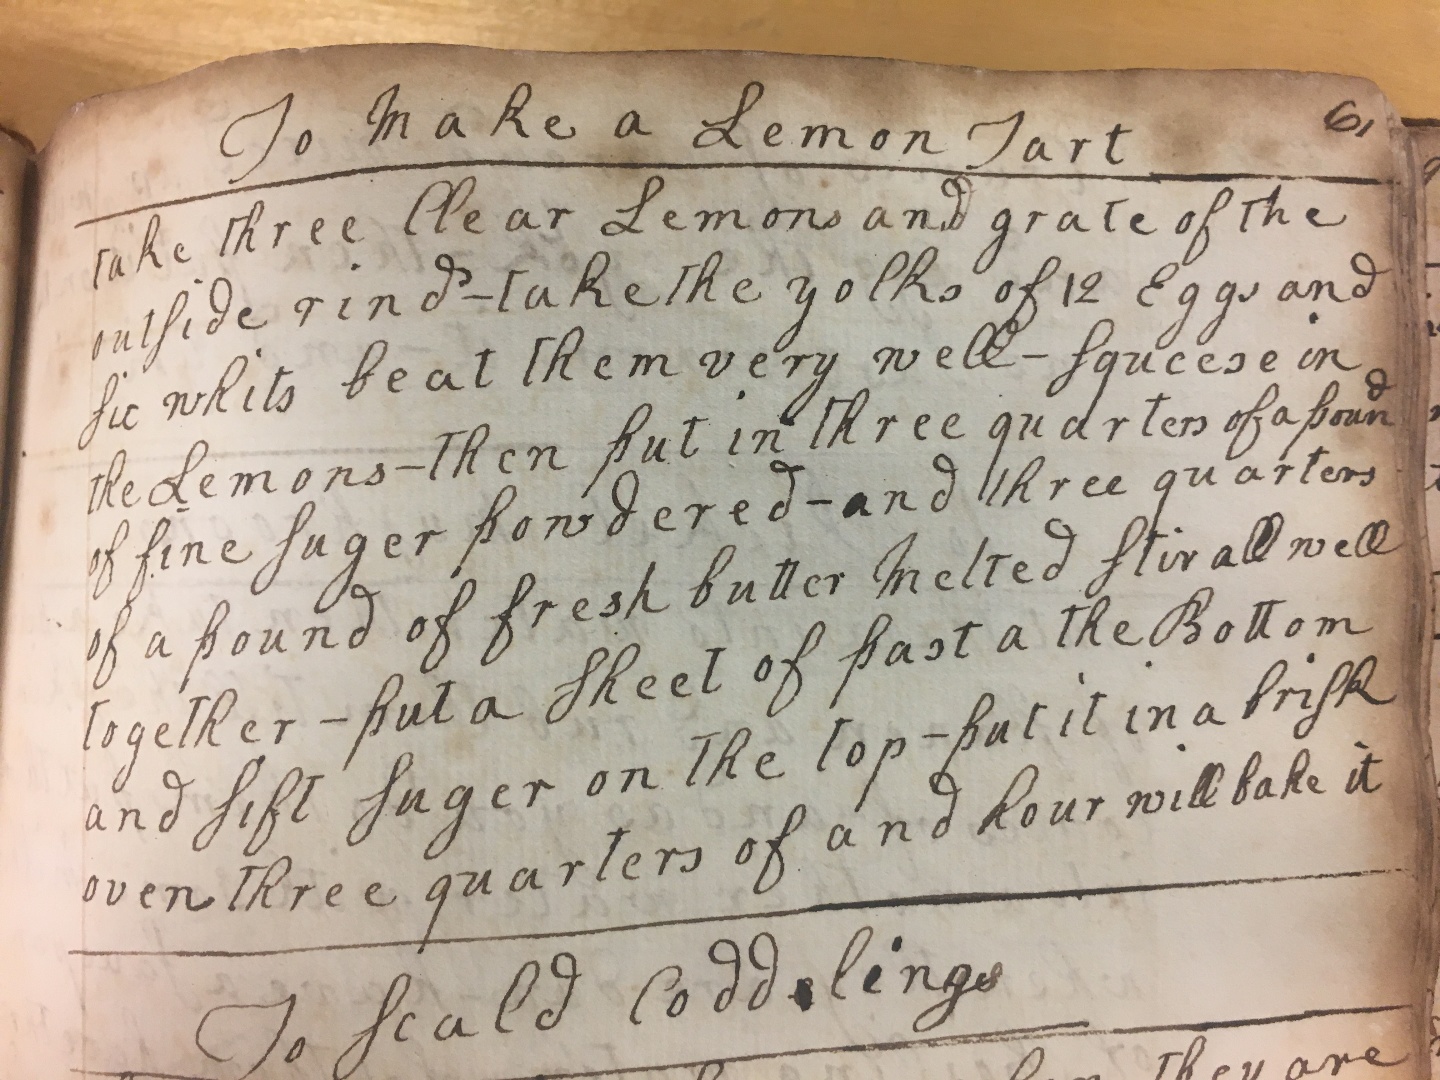 To Make a Lemon Tart 61
take three Clear Lemons and grate of the
outside rind - take the yolks of 12 Eggs and
six whits beat them very well - squeese in
the Lemons - then put in three quarters of a pound
of fine suger powdered - and three quarters
of a pound of fresh butter Melted stir all well
together - put a sheet of past a the Bottom
and sift suger on the top - put it in a brisk
oven three quarters of and hour will bake it
To scald Coddlings
they are